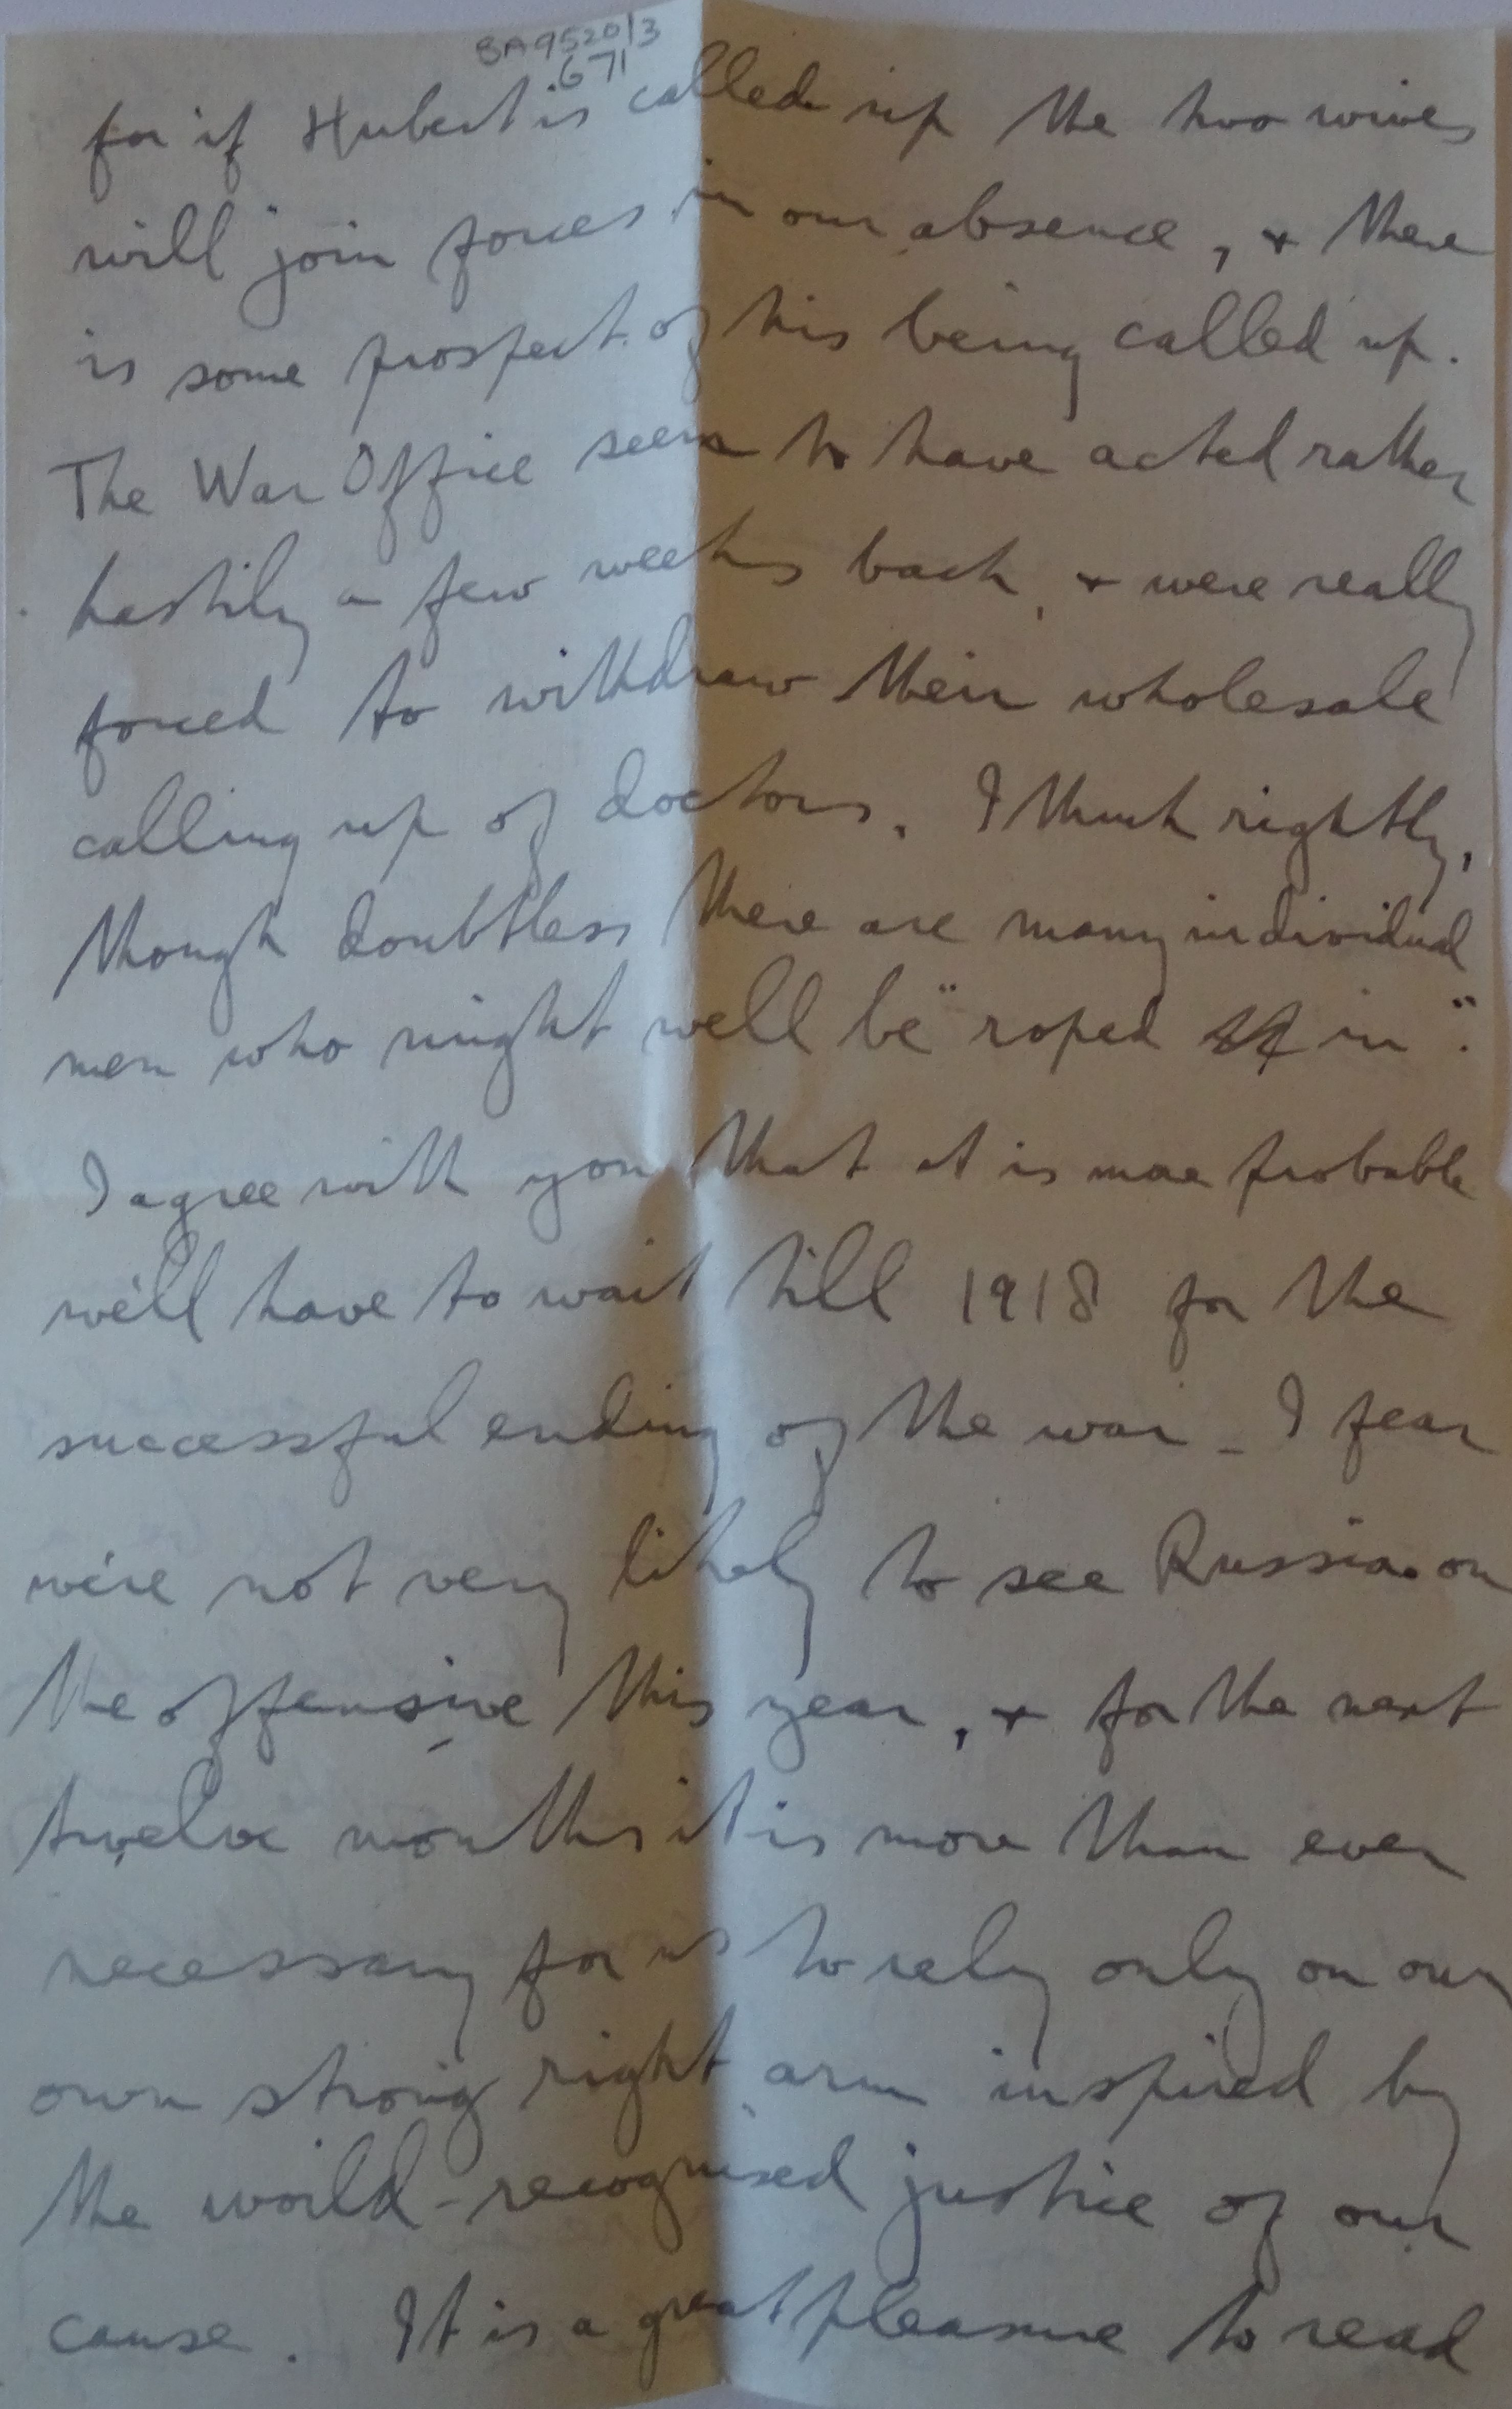 BA9520/3
.671
for if Hubert is called up the two wives
will join forces in our absence, & there
is some prospect of his being called up.
The War Office seem to have acted rather
hastily a few weeks back, & were really
forced to withdraw their wholesale
calling up of doctors. I think rightly,
though doubtless there are many individual
men who might well be "roped in".
I agree with you that it is more probable
we'll have to wait till 1918 for the
successful ending of the war - I fear
we're not very likely to see Russia on
the offensive this year, & for the next
twelve months it is more than ever
necessary for us to rely only on our
own strong right arm inspired by
the world-recognised justice of our
cause. It is a great pleasure to read